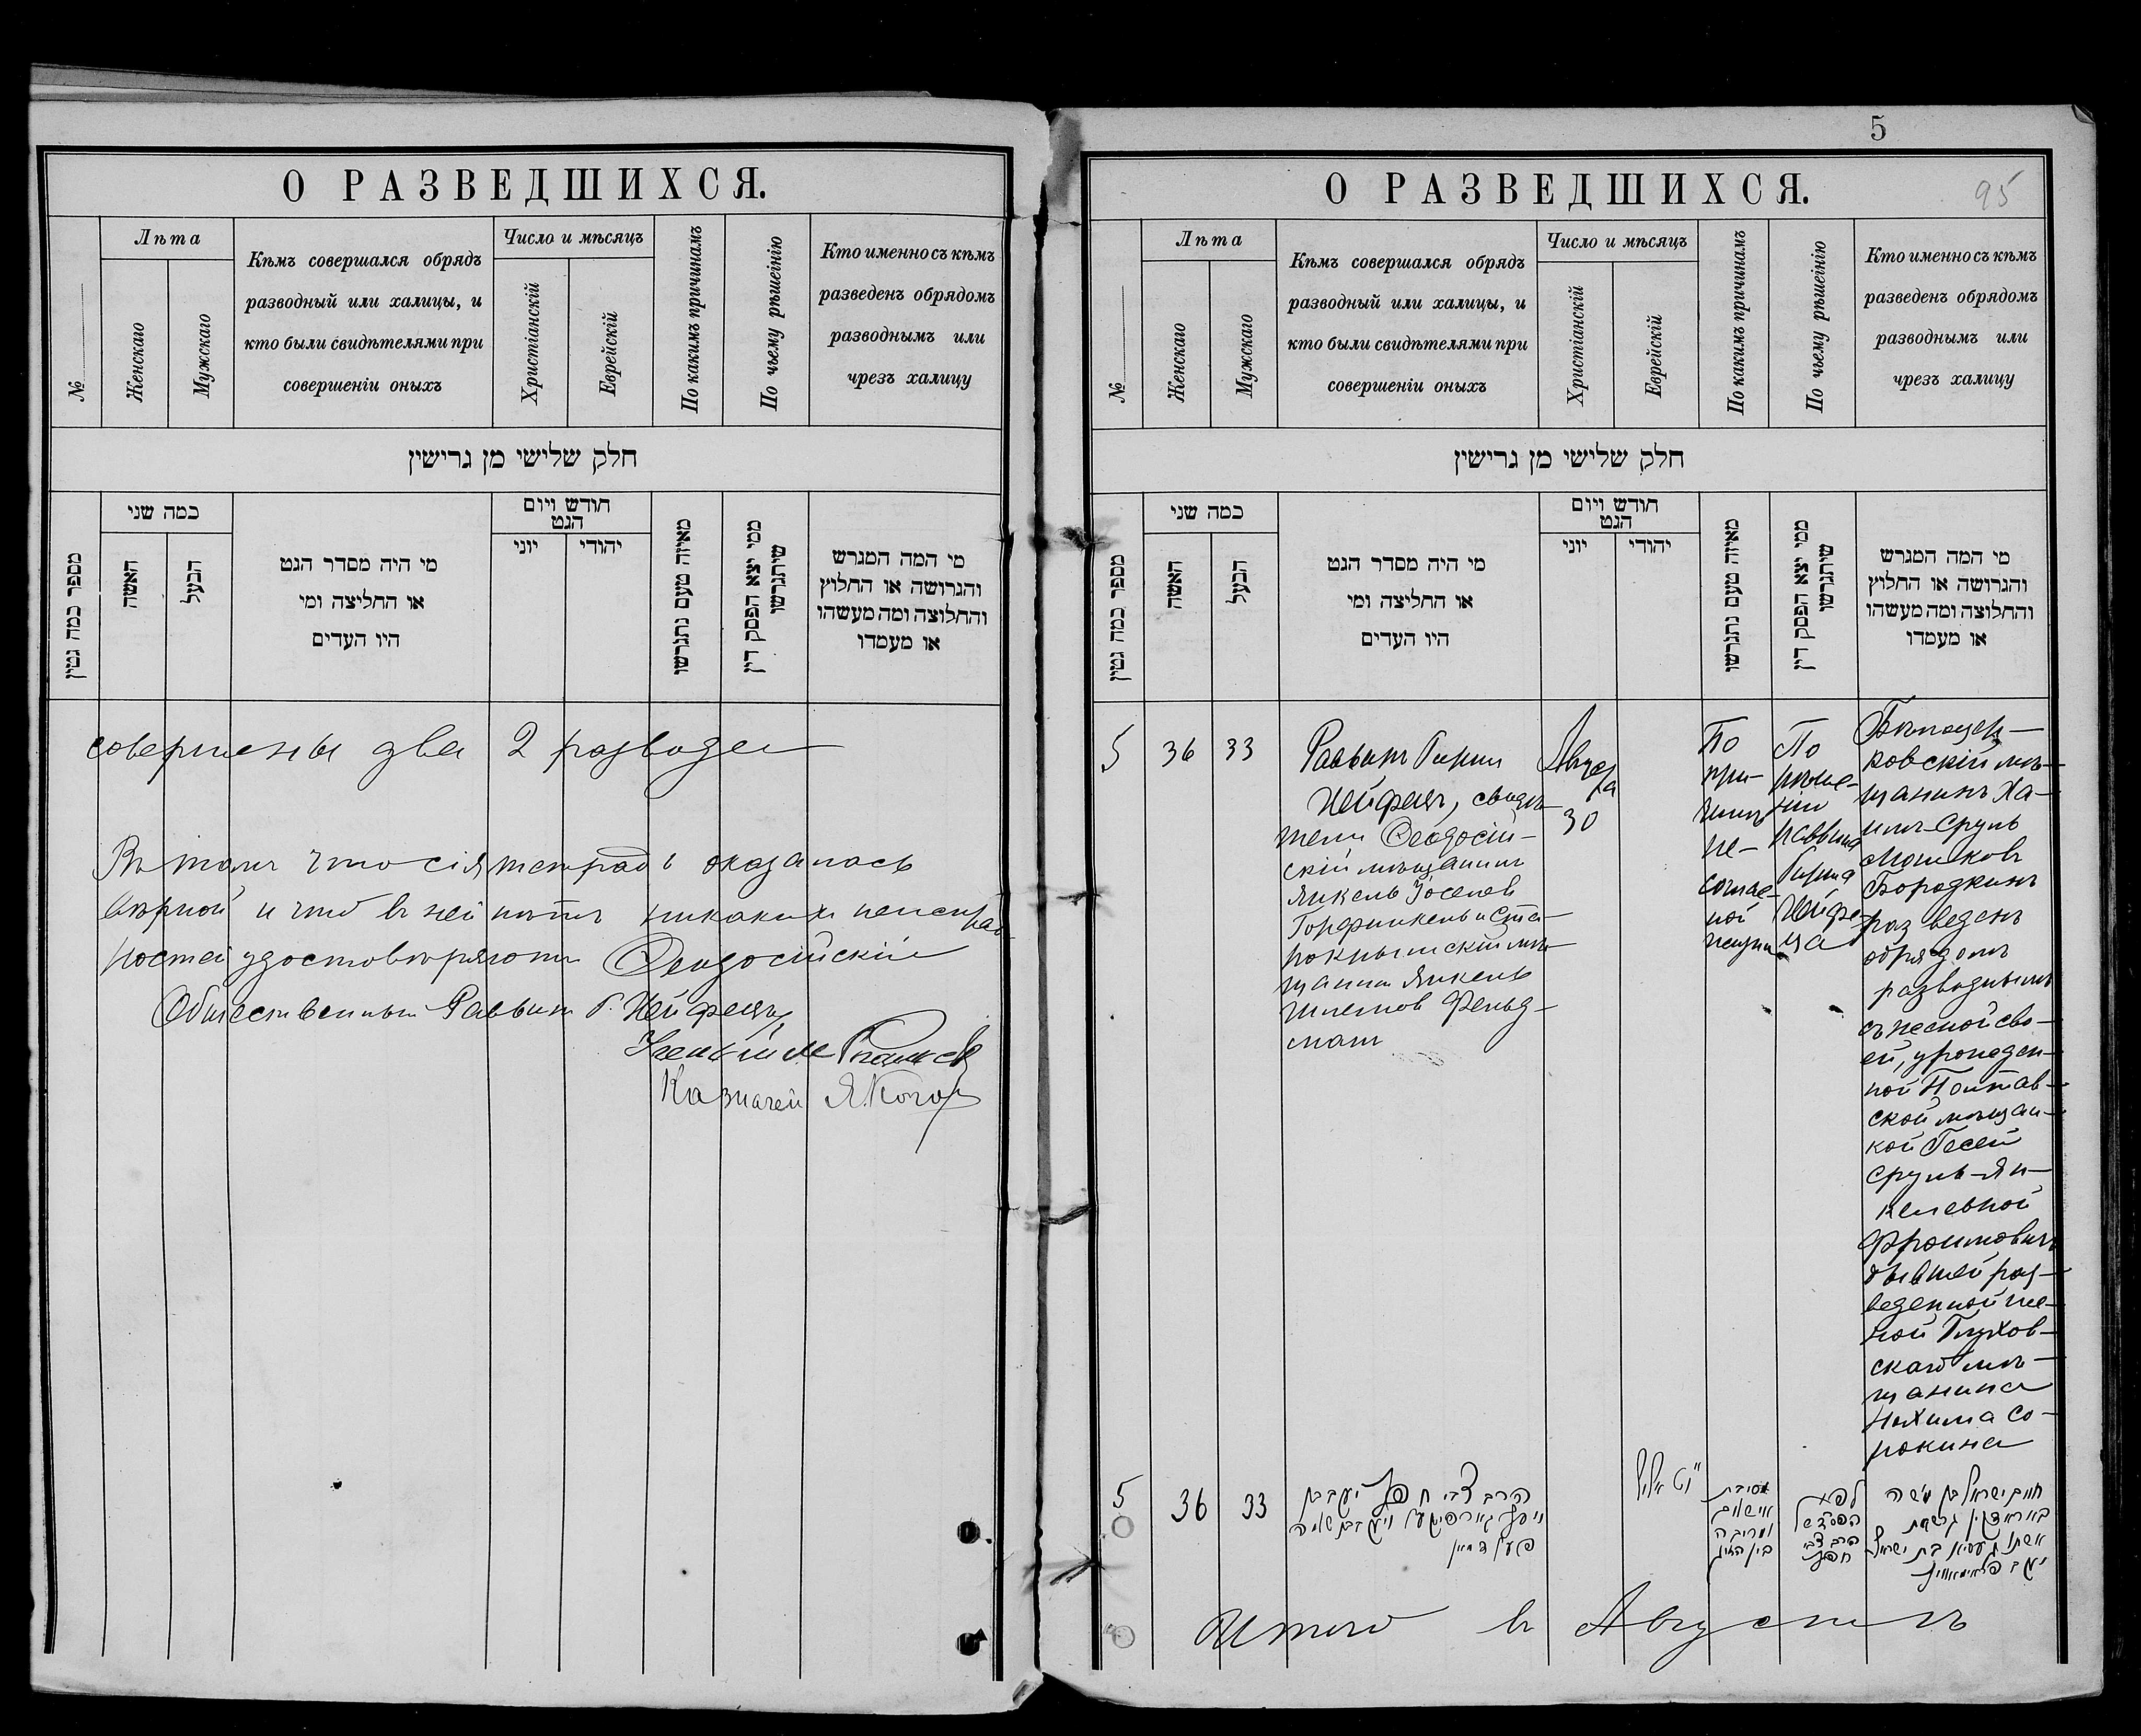 О РАЗВЕДШИХСЯ.
№
Лѣта
Женскаго
Мужскаго
Кѣмъ совершался обрядъ
разводный или халицы, и
кто были свидѣтелями при
совершеніи оныхъ
Число и мѣсяцъ
Христіанскій
Еврейскій
По какимъ причинамъ
По чьему рѣшеінію
Кто именно съ кѣмъ
разведенъ обрядомъ
разводнымъ или
чрезъ халицу
חלק שלישי מן גרישין
מספר כמה גטין
כמה שני
האשה
הבעל
מי היה מסדר הגט
או החליצה ומי
היו העדים
חודש ויום
הגט
יוני
יהודי
מאיזה טעם נתגרשו
ממי יצא הפסק דין
שיתגרשו
מי המה המגרש
והגרושה או החלוץ
והחלוצה ומה מעשהו
או מעמדו
совершены два 2 развода
Въ томъ что сія тетрадь оказалась
вѣрной и что въ ней нѣтъ никакихъ неисправ-
ностей удостовѣряютъ Феодосійскій
Общественный Раввинъ Г. Хейфецъ
Казначей Я. Коган
5
95
О РАЗВЕДШИХСЯ.
№
Лѣта
Женскаго
Мужскаго
Кѣмъ совершался обрядъ
разводный или халицы, и
кто были свидѣтелями при
совершеніи оныхъ
Число и мѣсяцъ
Христіанскій
Еврейскій
По какимъ причинамъ
По чьему рѣшеінію
Кто именно съ кѣмъ
разведенъ обрядомъ
разводнымъ или
чрезъ халицу
חלק שלישי מן גרישין
מספר כמה גטין
כמה שני
האשה
הבעל
מי היה מסדר הגט
או החליצה ומי
היו העדים
חודש ויום
הגט
יוני
יהודי
מאיזה טעם נתגרשו
ממי יצא הפסק דין
שיתגרשו
מי המה המגרש
והגרושה או החלוץ
והחלוצה ומה מעשהו
או מעמדו
5
36
33
Раввинъ Гирш
Хейфецъ, свидѣ-
тели Феодосій-
скій мѣщанинъ
Янкель Іоселев
Горфинкель и Ста-
рокрымскій мѣ-
щанин Янкель
Шлемов Фельд-
ман
Августа
30
По
при-
чинѣ
не-
соглас-
ной
жизни
По
рѣше-
нію
Раввина
Гирша
Хейфе-
ца
ковскій мѣ-
щанинъ Ха-
имъ-Сруль
Мошков
Бородкинъ
разведенъ
обрядомъ
разводнымъ
съ женой сво-
ей, урожден-
ной Полтав-
ской мѣщан-
кой Гесей
Сруль-Ян-
келевной
Фроимовичъ
бывшей раз-
веденной же-
ной Глухов-
скаго мѣ-
щанина
Нохима Со-
рокина
5
36
33
הרב צבי חפץ יעקב בן
פעלדמאן
י"ט אלול
מסיבת
אי שלום
ומריבה
בין הזוג
לפי
הפס"ד של
הרב צבי
חפץ
חיים ישראל בן משה
באראדקין גרש את
אשתו געסיא בת ישראל
יעקב פראימאוויץ
Итого въ Августѣ